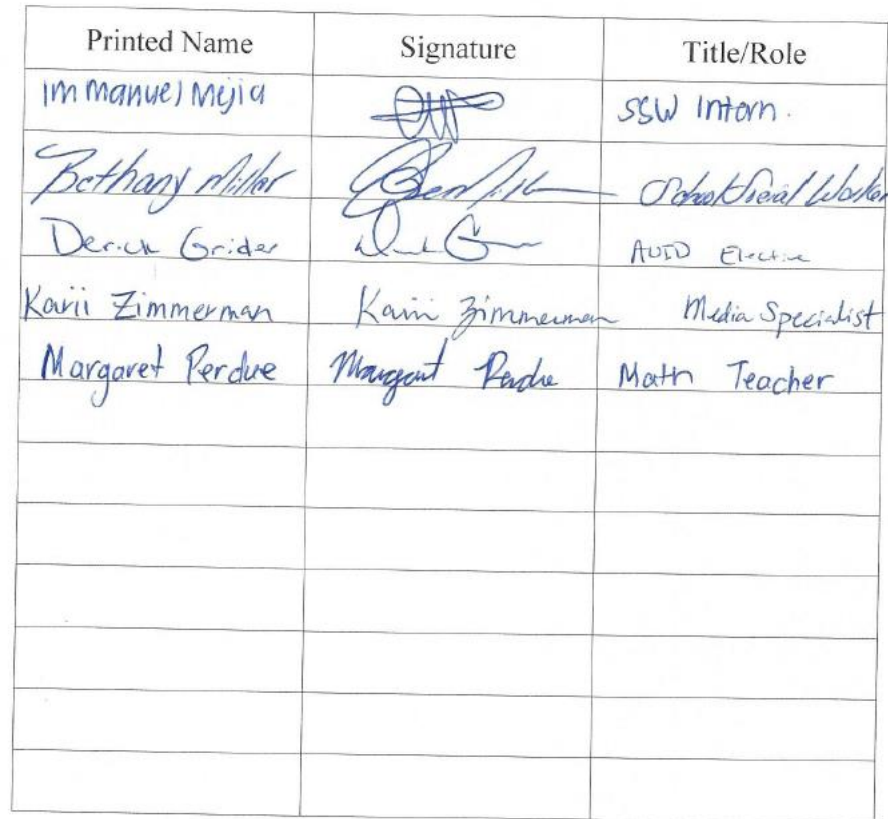 Printed Name Signature Title/Role
Immanuel Mejia SSW Intern.
Bethany Miller School Social Worker
Derick Grider AVID Elective
Karii Zimmerman Karii Zimmerman Media Specialist
Margaret Perdue Margaret Perdue Math Teacher